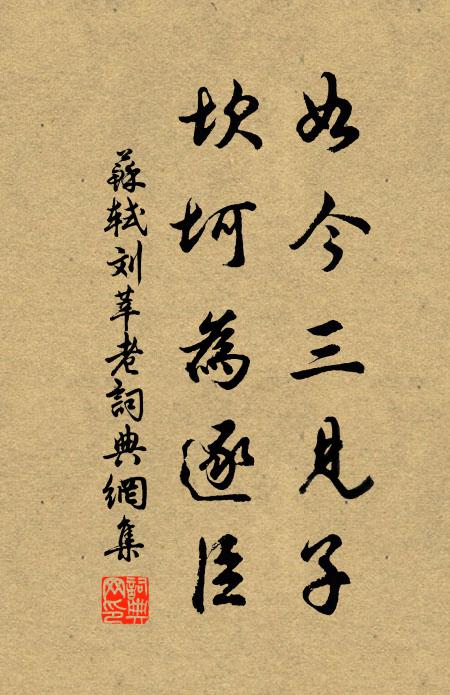 如今三見子
坎坷為逐臣
蘇軾刘莘老詞典網集
詞典网印